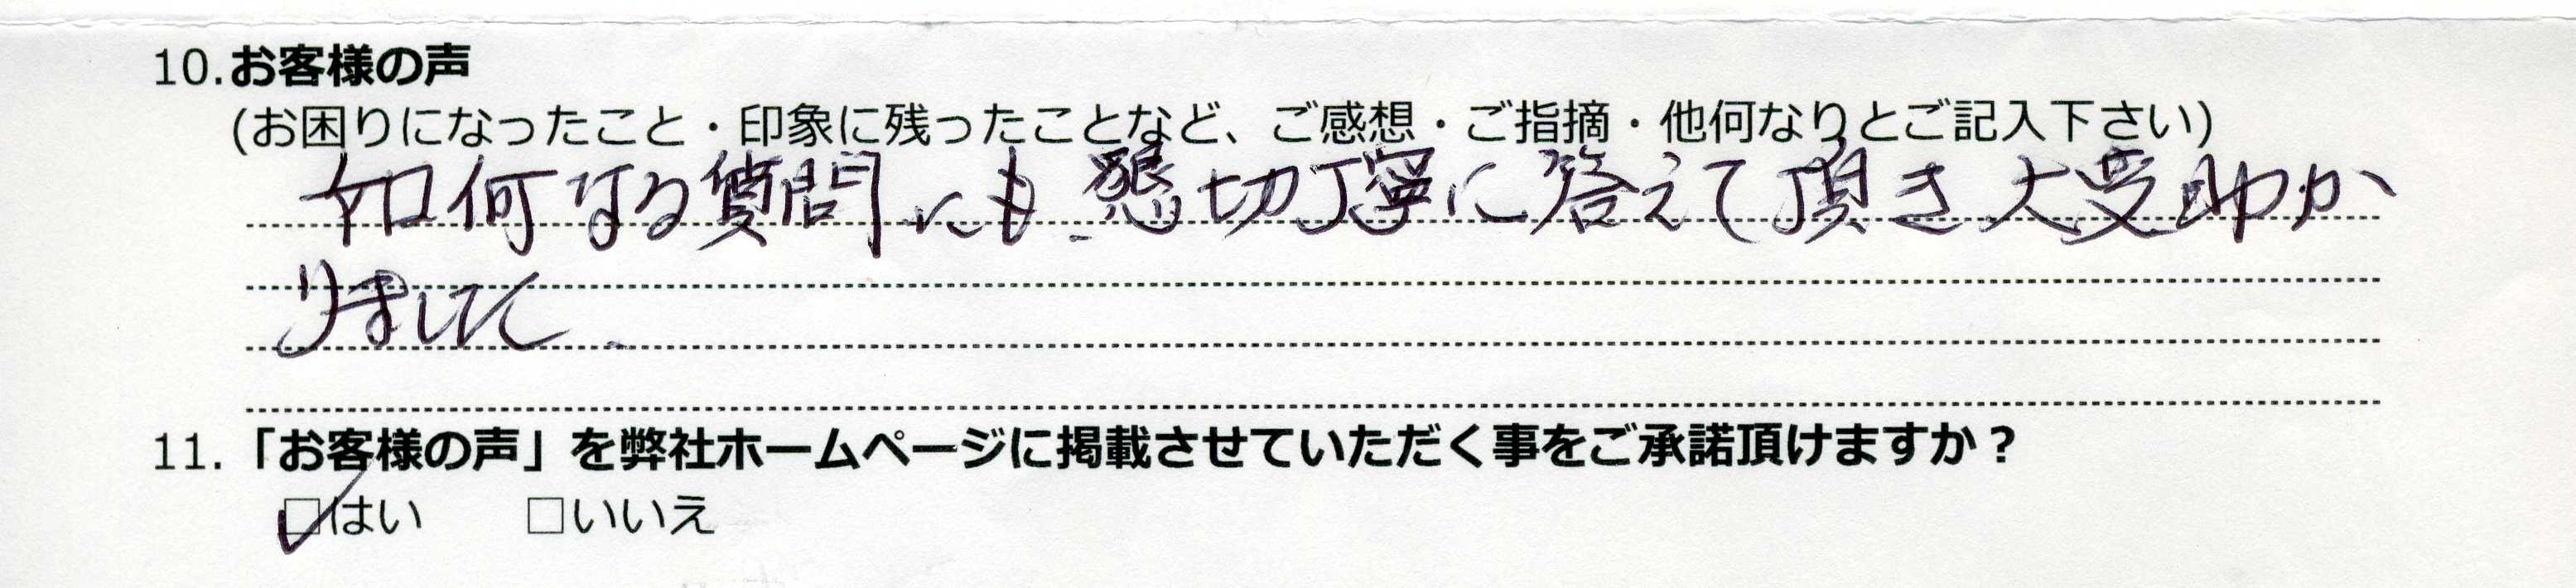 10.お客様の声
(お困りになったこと・印象に残ったことなど、ご感想・ご指摘・他何なりとご記入下さい)
如何なる質問にも、懇切丁寧に答えて頂き大変助か
りました。
11.「お客様の声」を弊社ホームページに掲載させていただく事をご承諾頂けますか？
☑はい　□いいえ